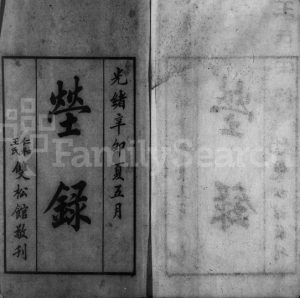 光緒辛卯夏五月
塋錄
仁和王氏
雙松館敬刊
FamilySearch